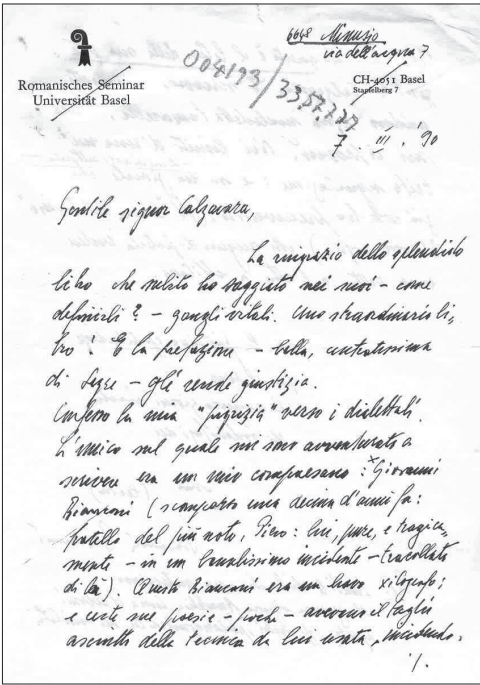 6648 Minusio
via dell'acqua 7
004193/33.57.727
Romanisches Seminar
Universität Basel
CH-4051 Basel
Stapfelberg 7
7 . III . '90
Gentile signor Calzavara,
La ringrazio dello splendido
libro che subito ho saggiato nei suoi – come
definirli? – gangli vitali. Uno straordinario li=
bro! E la prefazione – bella, centratissima
di Segre – gli rende giustizia.
Confesso la mia "pigrizia" verso i dialettali.
L'unico sul quale mi sono avventurato a
scrivere era un mio compaesano: Giovanni
Bianconi (scomparso una decina d'anni fa:
fratello del più noto, Piero: lui, pure, e tragica=
mente – in un banalissimo incidente – tracollato
di là). Questo Bianconi era un bravo xilografo;
e certe sue poesie – poche – avevano il taglio
asciutto della tecnica da lui usata, incidendo.
./.